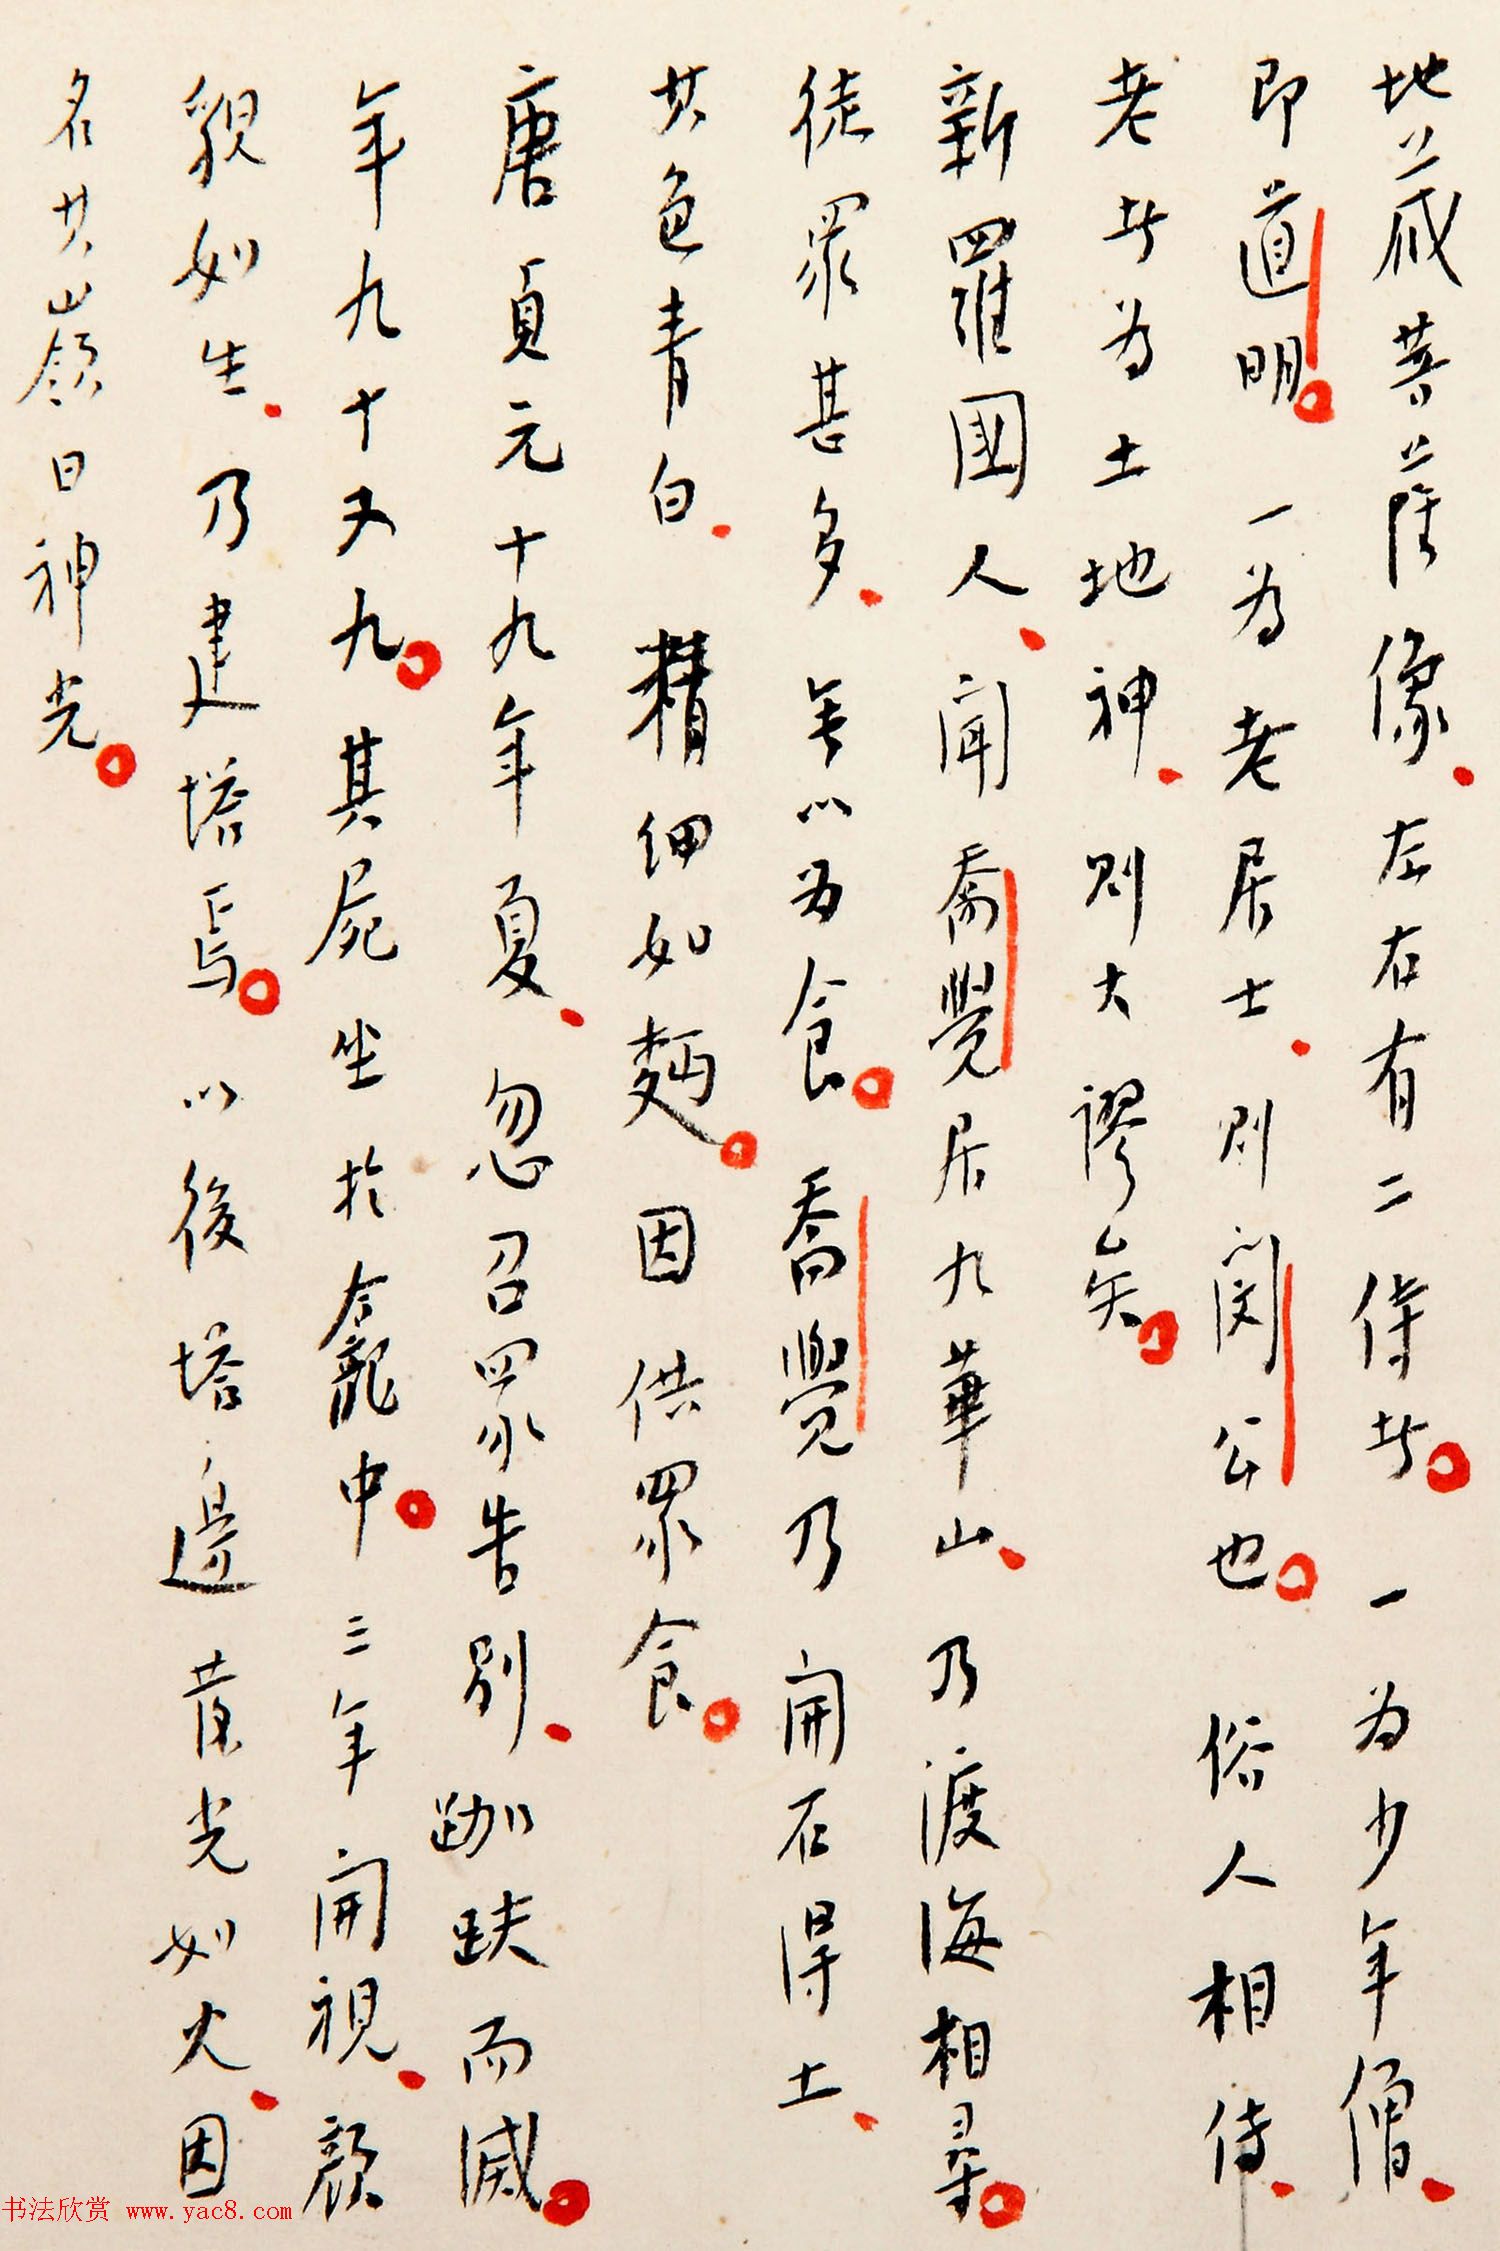 地藏菩薩像左右有二侍者一为少年僧
即道明一为老居士则閔公也俗人相傳
老者为土地神则大謬矣
新羅國人聞喬覺居九華山乃渡海相尋
徒眾甚多無以为食喬覺乃開石得土
其色青白精细如麵因供眾食
唐貞元十九年夏忽召眾告别跏趺而滅
年九十又九其屍坐於龕中三年開視顏
貌如生乃建塔焉以後塔邊發光如火因
名其嶺曰神光
书法欣赏 www.yac8.com